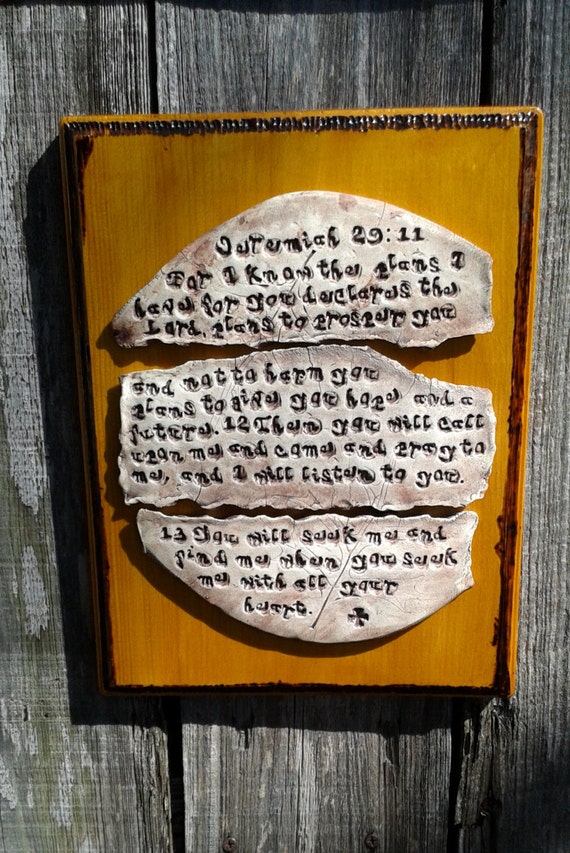 Jeremiah 29:11
For I know the plans I
have for you declares the
Lord, plans to prosper you
and not to harm you
plans to give you hope and a
future. 12 Then you will call
upon me and come and pray to
me, and I will listen to you.
13 You will seek me and
find me when you seek
me with all your
heart.